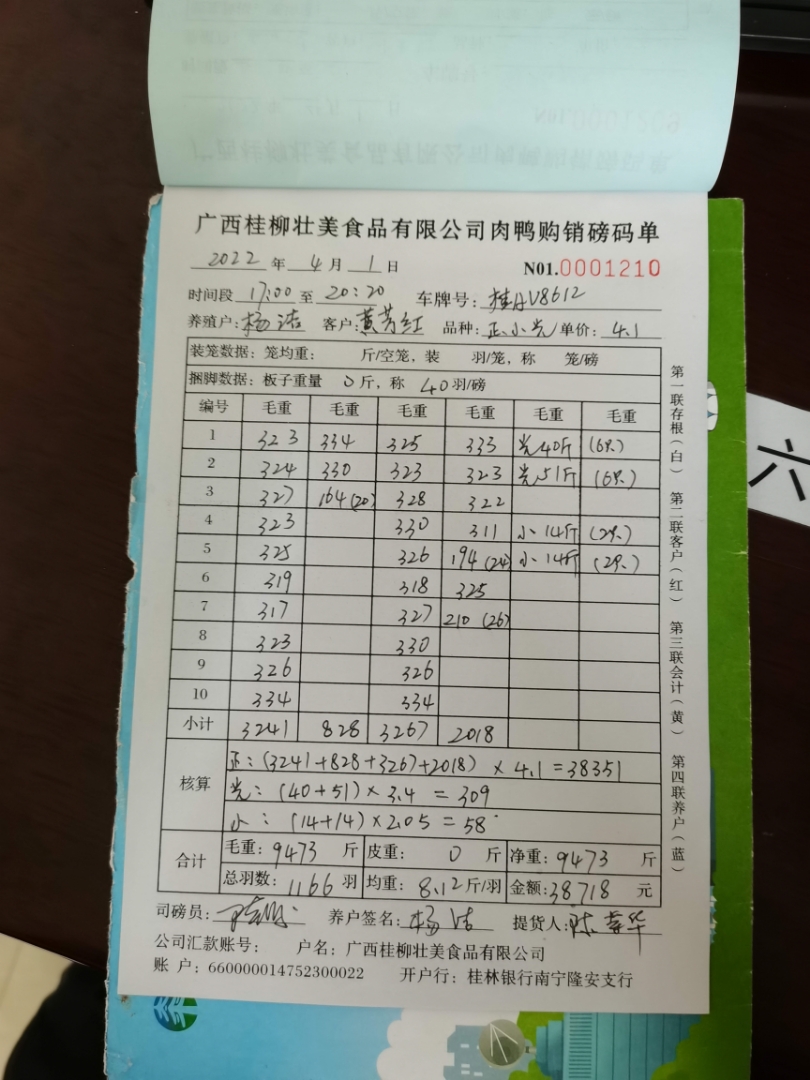 广西桂柳壮美食品有限公司肉鸭购销磅码单
2022 年 4 月 1 日 N01.0001210
时间段 17:00 至 20:20 车牌号: 桂AV8612
养殖户: 杨洁 客户: 黄芳红 品种: 正.小.光 单价: 4.1
装笼数据: 笼均重: 斤/空笼, 装 羽/笼, 称 笼/磅
捆脚数据: 板子重量 0 斤, 称 40 羽/磅
编号 毛重 毛重 毛重 毛重 毛重 毛重
1 323 334 325 333 光40斤 (6只.)
2 324 330 323 323 光51斤 (6只.)
3 327 164(20) 328 322
4 323 330 311 小14斤 (2只.)
5 325 326 194(24) 小14斤 (2只.)
6 319 318 325
7 317 327 210 (26)
8 323 330
9 326 326
10 334 334
小计 3241 828 3267 2018
核算
正: (3241+828+3267+2018) × 4.1 = 38351
光: (40+51)×3.4 = 309
小: (14+14)×2.05 = 58
合计
毛重: 9473 斤 皮重: 0 斤 净重: 9473 斤
总羽数: 1166 羽 均重: 8.12 斤/羽 金额: 38718 元
司磅员: 养户签名: 杨洁 提货人:
公司汇款账号: 户名: 广西桂柳壮美食品有限公司
账 户: 660000014752300022 开户行: 桂林银行南宁隆安支行
第一联存根(白) 第二联客户(红) 第三联会计(黄) 第四联养户(蓝)
六